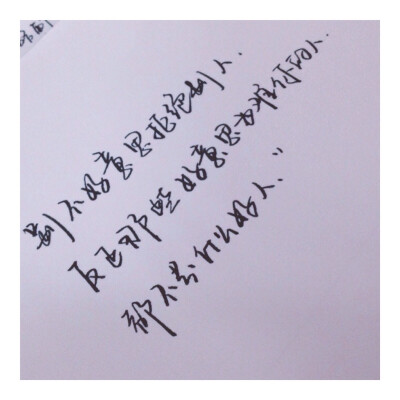 别不好意思拒绝别人.
反正那些好意思为难你的人.
都不是什么好人."